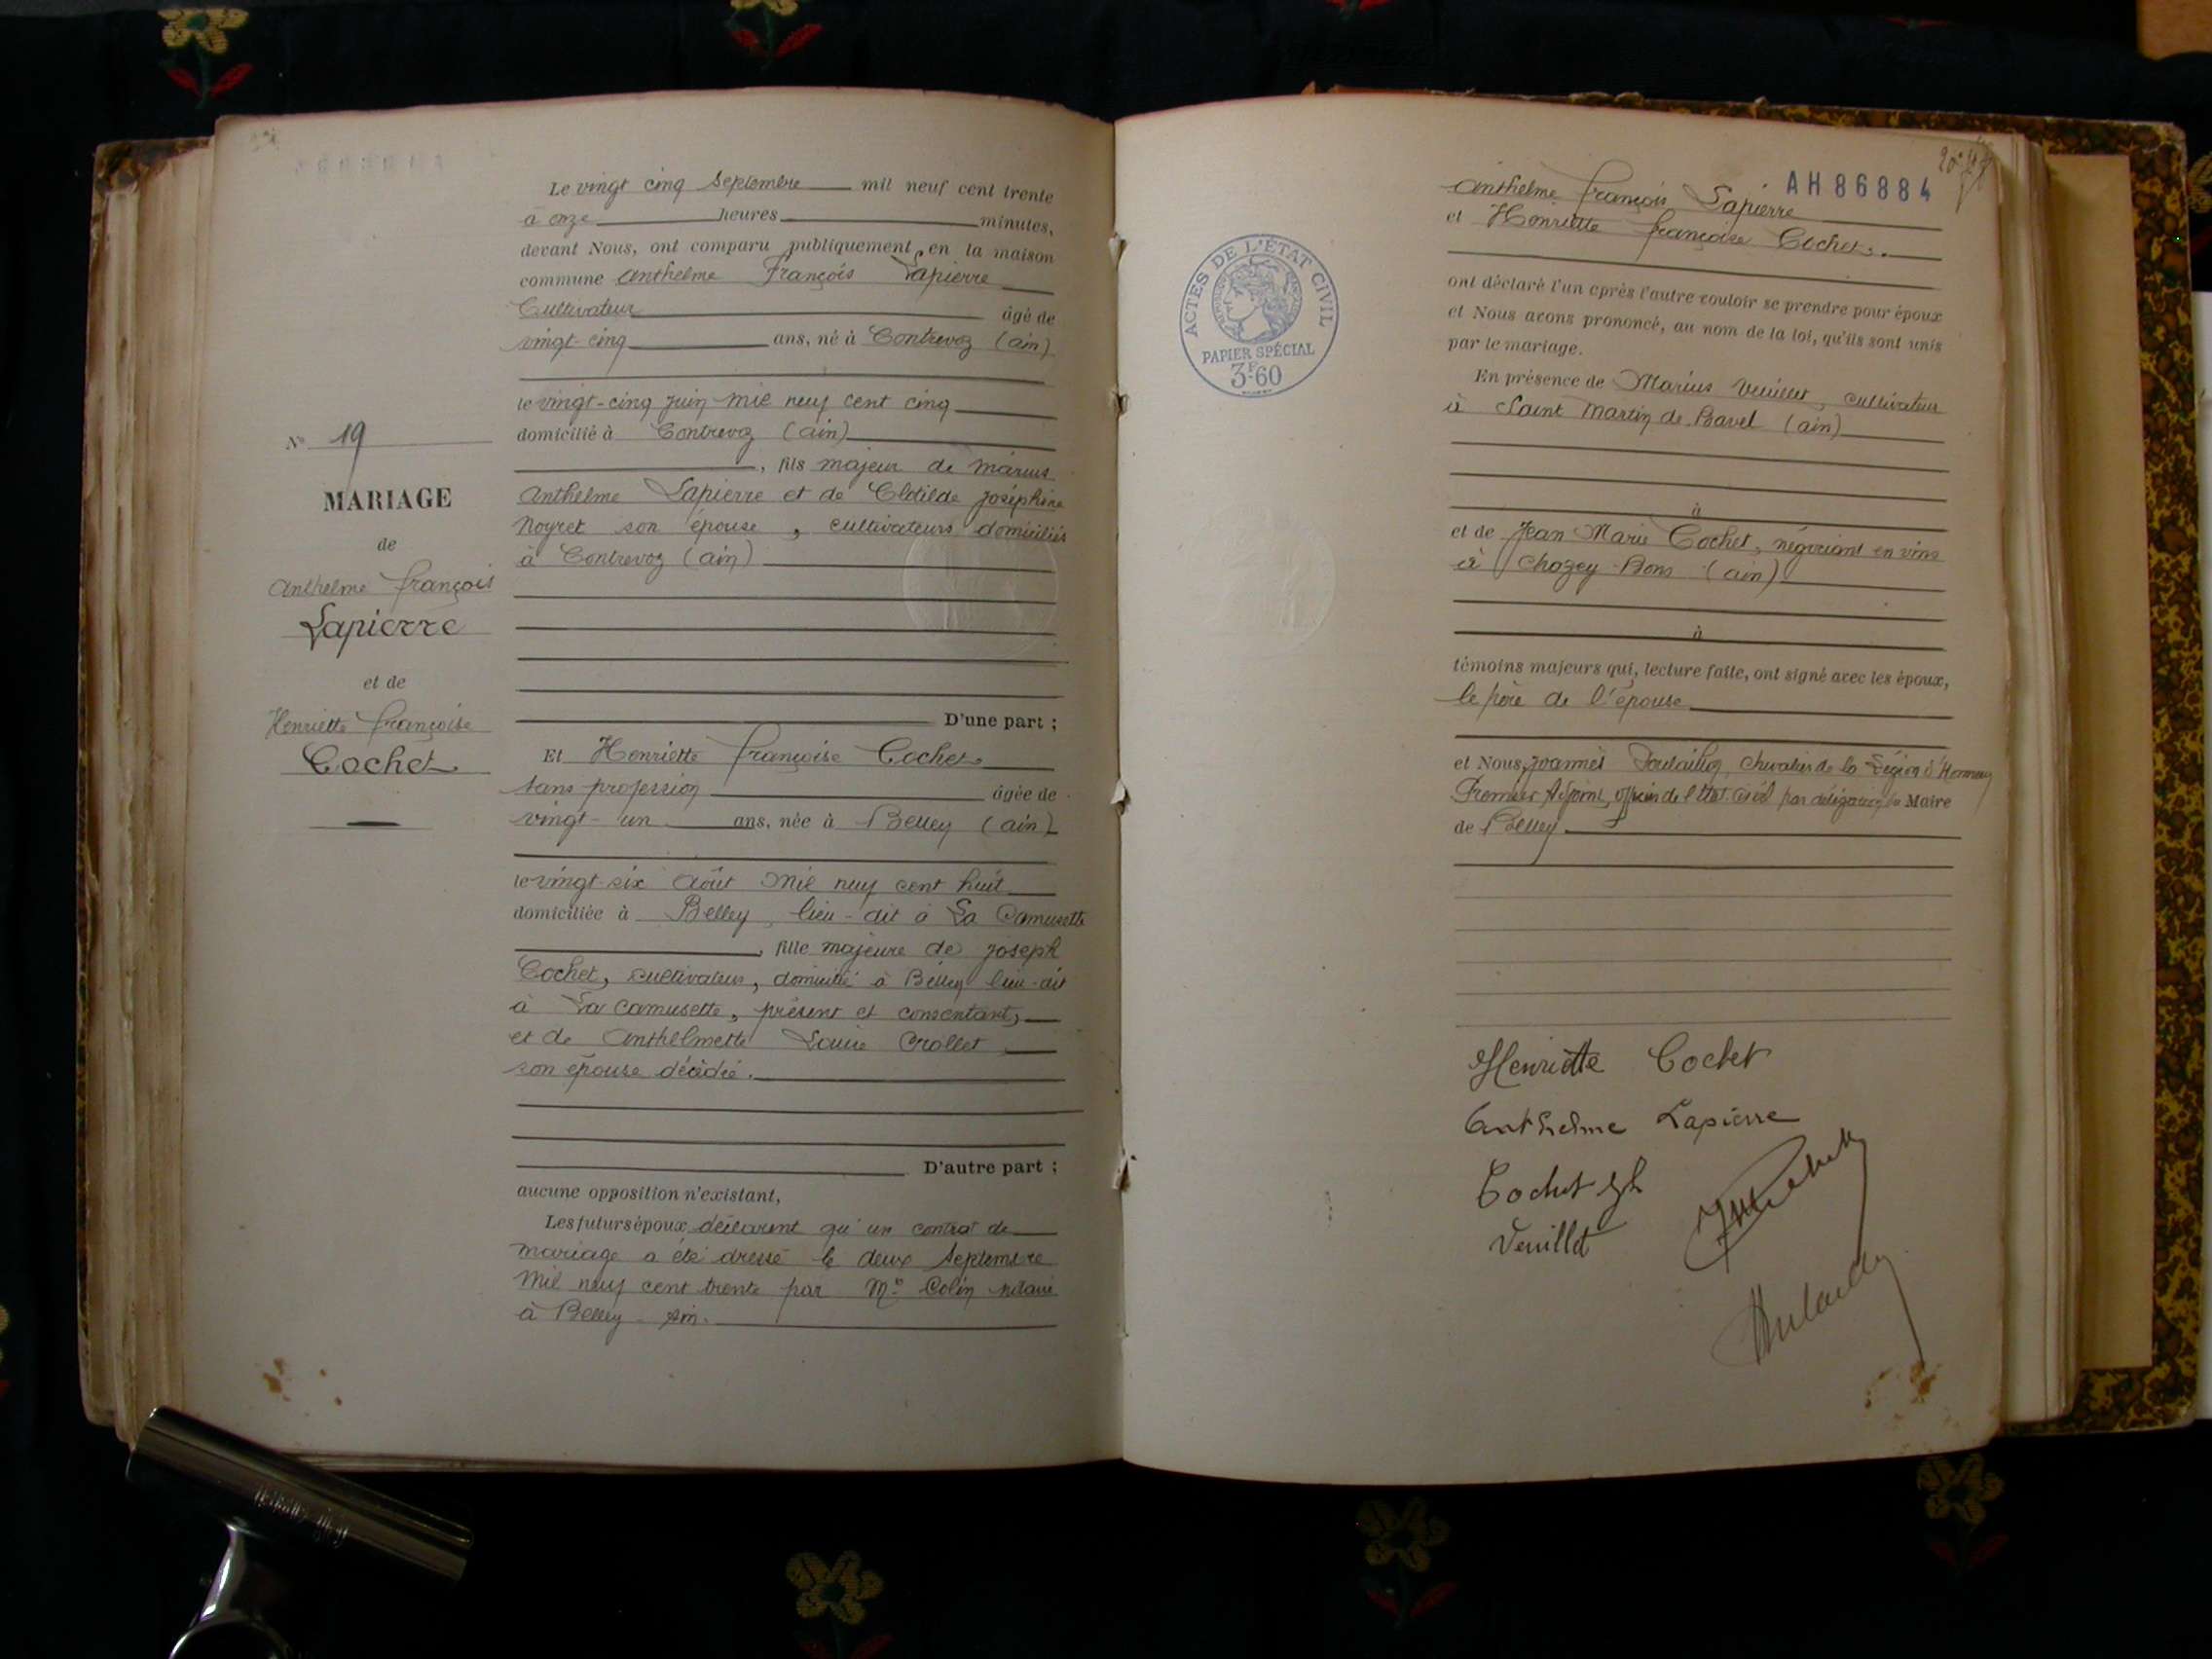 Le vingt cinq Septembre mil neuf cent trente
à onze heures minutes,
devant Nous, ont comparu publiquement, en la maison
commune Anthelme François Lapierre
Cultivateur âgé de
vingt-cinq ans, né à Contrevoz (ain)
le vingt-cinq juin mil neuf cent cinq
domicilié à Contrevoz (ain)
, fils majeur de marius
Anthelme Lapierre et de Clotilde joséphine
Noyret son épouse, cultivateurs domiciliés
à Contrevoz (ain)
D'une part ;
Et Henriette françoise Cochet
sans profession âgée de
vingt-un ans, née à Belley (ain)
le vingt-six Août mil neuf cent huit
domiciliée à Belley, lieu-dit à La Camusette
, fille majeure de joseph
Cochet, cultivateur, domicilié à Belley lieu-dit
à La Camusette, présent et consentant,
et de Anthelmette Louise Crollet
son épouse décédée.
D'autre part ;
aucune opposition n'existant,
Les futurs époux déclarent qu'un contrat de
mariage a été dressé le deux Septembre
mil neuf cent trente par Me Colin notaire
à Belley - Ain.
No 19
MARIAGE
de
Anthelme françois
Lapierre
et de
Henriette françoise
Cochet
AH86884
Anthelme françois Lapierre
et Henriette françoise Cochet.
ont déclaré l'un après l'autre vouloir se prendre pour époux
et Nous avons prononcé, au nom de la loi, qu'ils sont unis
par le mariage.
En présence de Marius Veuillet, cultivateur
à Saint Martin de Bavel (ain)
à
et de Jean Marie Cochet, négociant en vins
à Chazey-Bons (ain)
à
témoins majeurs qui, lecture faite, ont signé avec les époux,
le père de l'épouse
et Nous, Joannès chevalier de la Légion d'Honneur
Premier Adjoint, officier de l'Etat civil par délégation du Maire
de Belley
ACTES DE L'ÉTAT CIVIL
PAPIER SPÉCIAL
3F60
Henriette Cochet
Anthelme Lapierre
Cochet jh
Veuillet